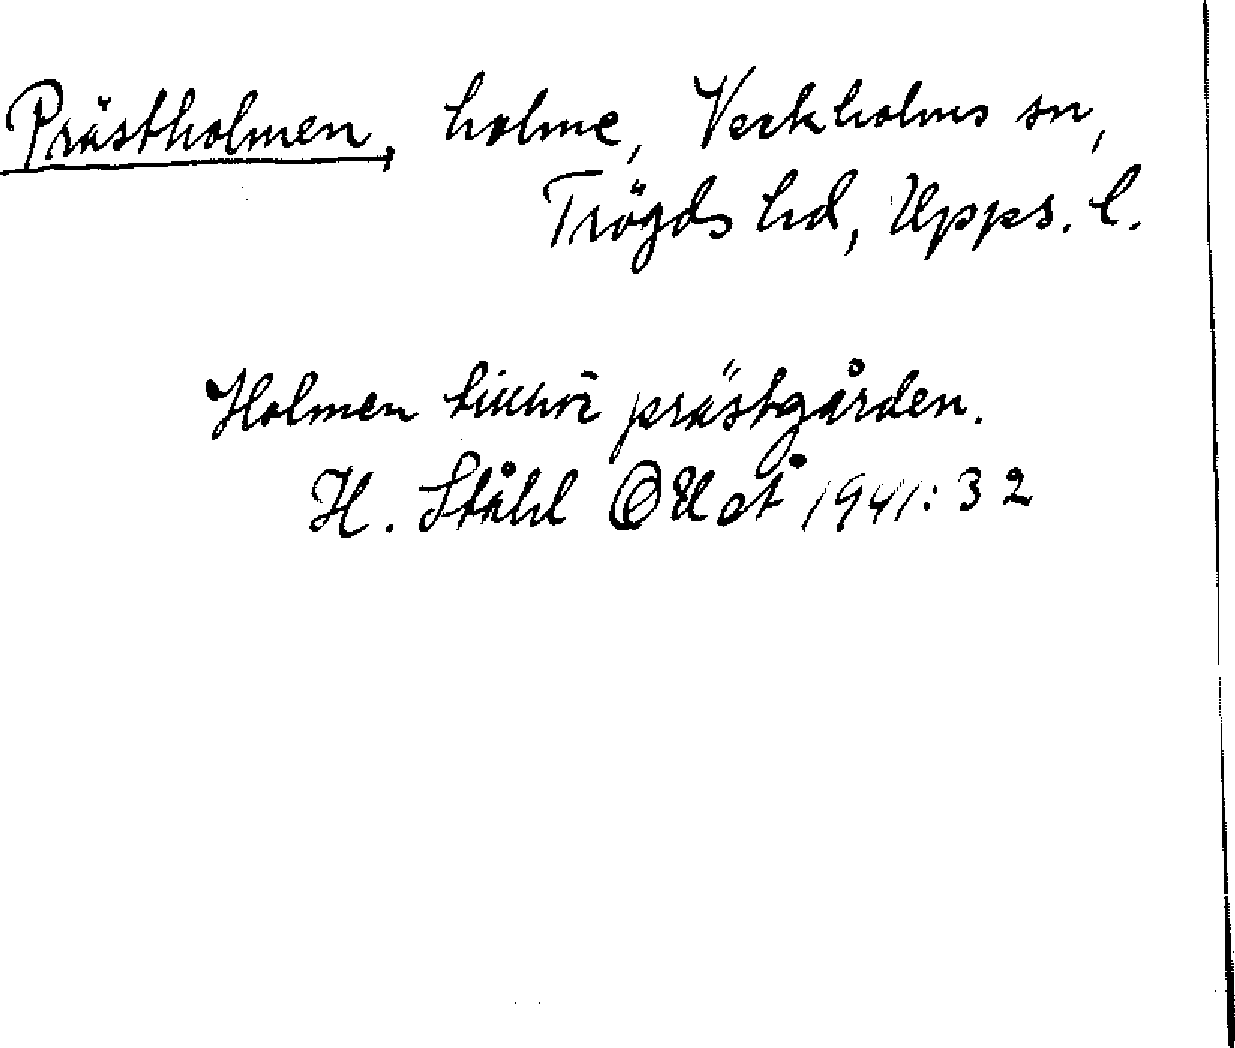 Prästholmen, holme, Veckholms sn,
Trögds hd, Upps. l.
Holmen tillhör prästgården.
H. Ståhl OUÅ 1941: 32